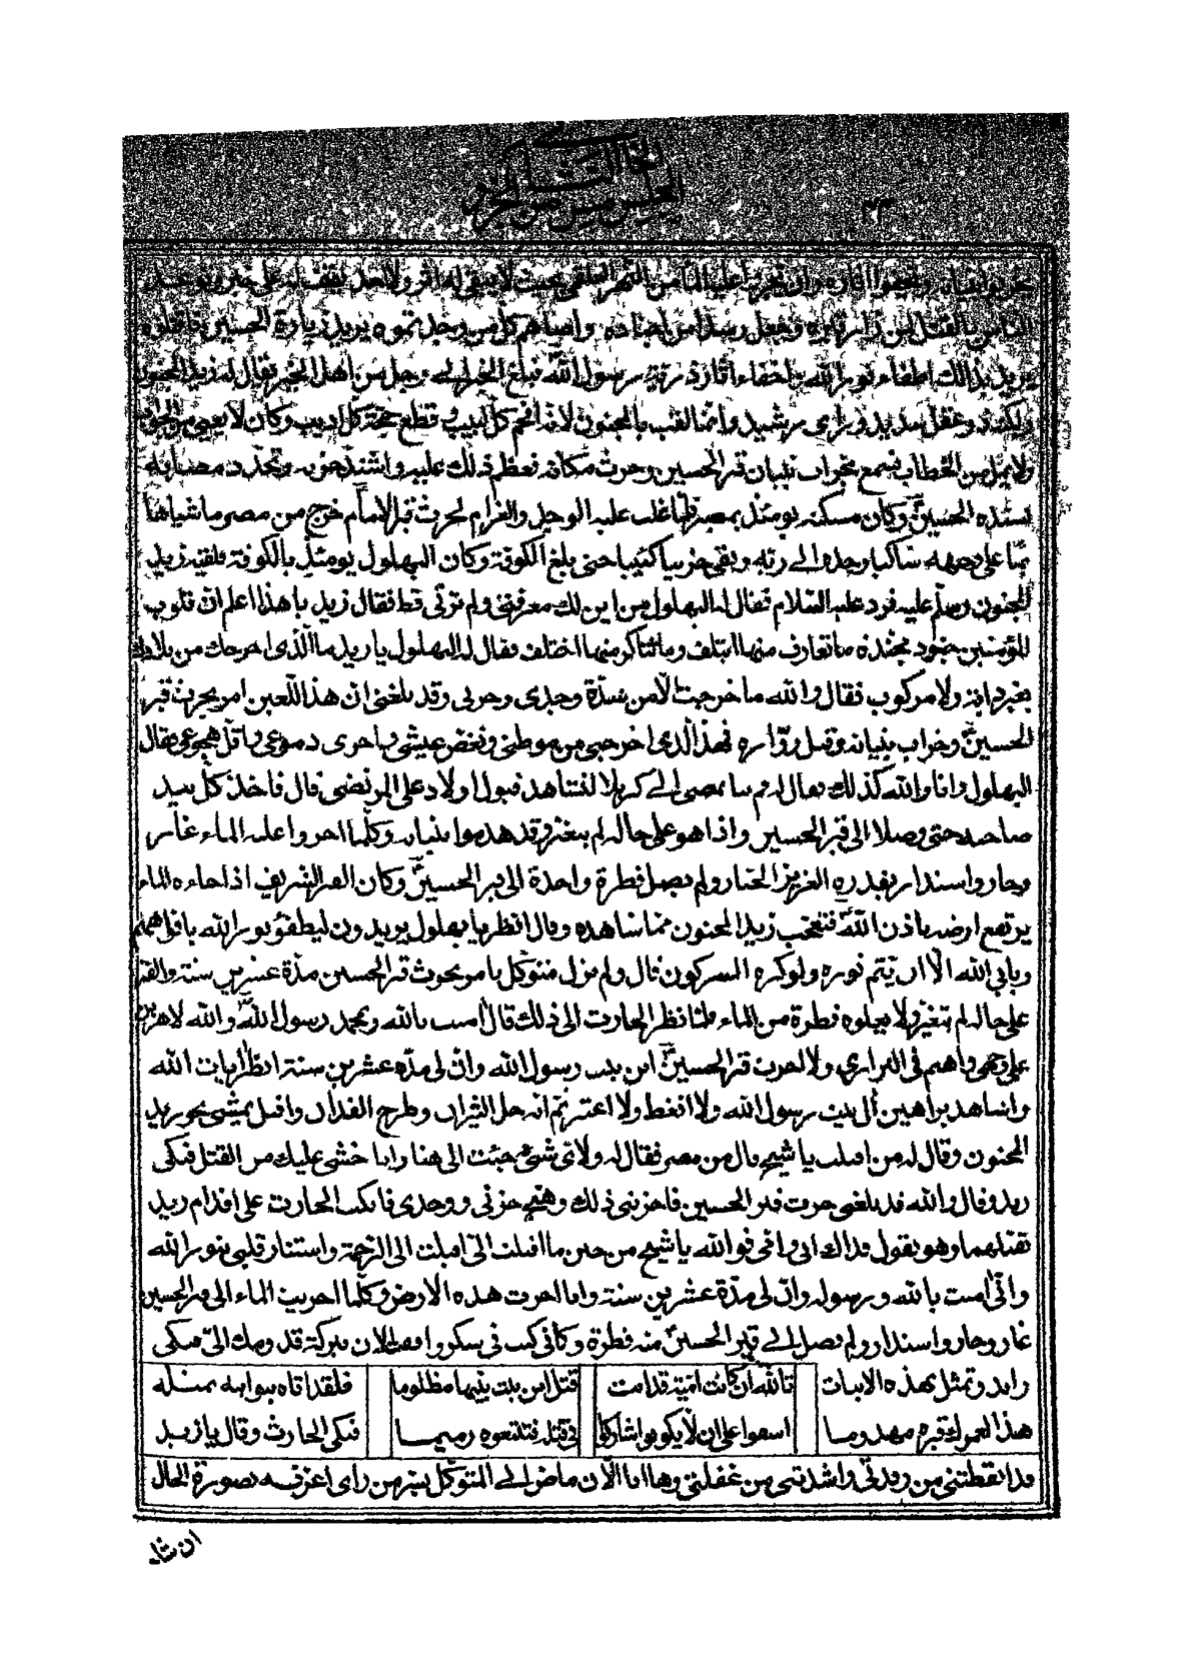 يخربوا بنيانه ويعفوا آثاره وان يجروا عليه الماء من النهر العلقمي بحيث لا تبقى له اثر ولا احد يقف له على خبر وتوعد
الناس بالقتل لمن زار قبره وجعل رصدا من اجناده واوصاهم كل من وجدتموه يريد زيارة الحسين فاقتلوه
يريد بذلك اطفاء نور الله واخفاء آثار ذرية رسول الله فبلغ الخبر الى رجل من اهل الخير يقال له زيد المجنون
ولكنه ذو عقل سديد وراى رشيد وانما لقب بالمجنون لانه افحم كل لبيب وقطع حجة كل اديب وكان لا يعيى من الجواب
ولا يمل من الخطاب فسمع بخراب بنيان قبر الحسين وحرث مكانه فعظم ذلك عليه واشتد حزنه وتجدد مصابه
بسيده الحسين وكان مسكنه يومئذ بمصر فلما غلب عليه الوجد والغرام لحرث قبر الامام خرج من مصر ماشيا هائ
ما على وجهه شاكيا وجده الى ربه وبقى حزينا كئيبا حتى بلغ الكوفة وكان البهلول يومئذ بالكوفة فلقيه زيد
المجنون وسلم عليه فرد عليه السلام فقال له البهلول من اين لك معرفتي ولم ترني قط فقال زيد يا هذا اعلم ان قلوب
المؤمنين جنود مجندة ما تعارف منها ائتلف وما تناكر منها اختلف فقال له البهلول يا زيد ما الذى اخرجك من بلادك
بغير دابة ولا مركوب فقال والله ما خرجت الا من شدة وجدى وحزني وقد بلغني ان هذا اللعين امر بحرث قبر
الحسين وخراب بنيانه وقتل زواره فهذا الذى اخرجني من موطني ونغص عيشى واجرى دموعى واقل هجوعى فقال
البهلول وانا والله كذلك فقال له قم بنا نمضى الى كربلا لنشاهد قبول اولاد على المرتضى قال فاخذ كل بيد
صاحبه حتى وصلا الى قبر الحسين واذا هو على حاله لم يتغير وقد هدموا بنيانه وكلما اجروا عليه الماء غار
وحار واستدار بقدرة العزيز الجبار ولم يصل قطرة واحدة الى قبر الحسين وكان القبر الشريف اذا جاءه الماء
يرتفع ارضه باذن الله فتعجب زيد المجنون مما شاهده وقال انظر يا بهلول يريدون ليطفؤ نور الله بافواههم
ويابى الله الا ان يتم نوره ولو كره المشركون قال ولم يزل متوكل يامر بحرث قبر الحسين مدة عشرين سنة والقبر
على حاله لم يتغير ولا يعلوه قطرة من الماء فلما نظر الحارث الى ذلك قال امنت بالله وبمحمد رسول الله والله لاهربن
على وجهى واهيم في البرارى ولا احرث قبر الحسين ابن بنت رسول الله وان لى مدة عشرين سنة انظر آيات الله
واشاهد براهين آل بيت رسول الله ولا اتعظ ولا اعتبر ثم انه حل الثيران وطرح الفدان واقبل يمشى نحو زيد
المجنون وقال له من اين اقبلت يا شيخ قال من مصر فقال له ولاى شئ جئت الى هنا وانا خشى عليك من القتل فبكى
زيد وقال والله قد بلغنى حرث قبر الحسين فاحزننى ذلك وهيج حزني ووجدى فانكب الحارث على اقدام زيد
يقبلهما وهو يقول فداك ابى وامى فوالله يا شيخ من حين ما اقبلت الىّ اقبلت الى الرحمة واستنار قلبى بنور الله
وانى آمنت بالله ورسوله وان لى مدة عشرين سنة وانا احرث هذه الارض وكلما اجريت الماء الى قبر الحسين
غار وحار واستدار ولم يصل الى قبر الحسين منه قطرة وكانى كنت فى سكر وافقت الان ببركة قدومك الىّ فبكى
زايد وتمثل بهذه الابيات تالله ان كانت امية قد اتت قتل ابن بنت نبيها مظلوما فلقد اتاه بنوابيه بمثله
هذا لعمرك قبره مهدوما اسفوا على ان لا يكونوا شاركوا فى قتله فتتبعوه رميما فبكى الحارث وقال يا زيد
قد ايقظتنى من رقدتى وارشدتنى من غفلتى وها انا الآن ماض الى المتوكل بسر من راى اعرفه بصورة الحال
ان شاء